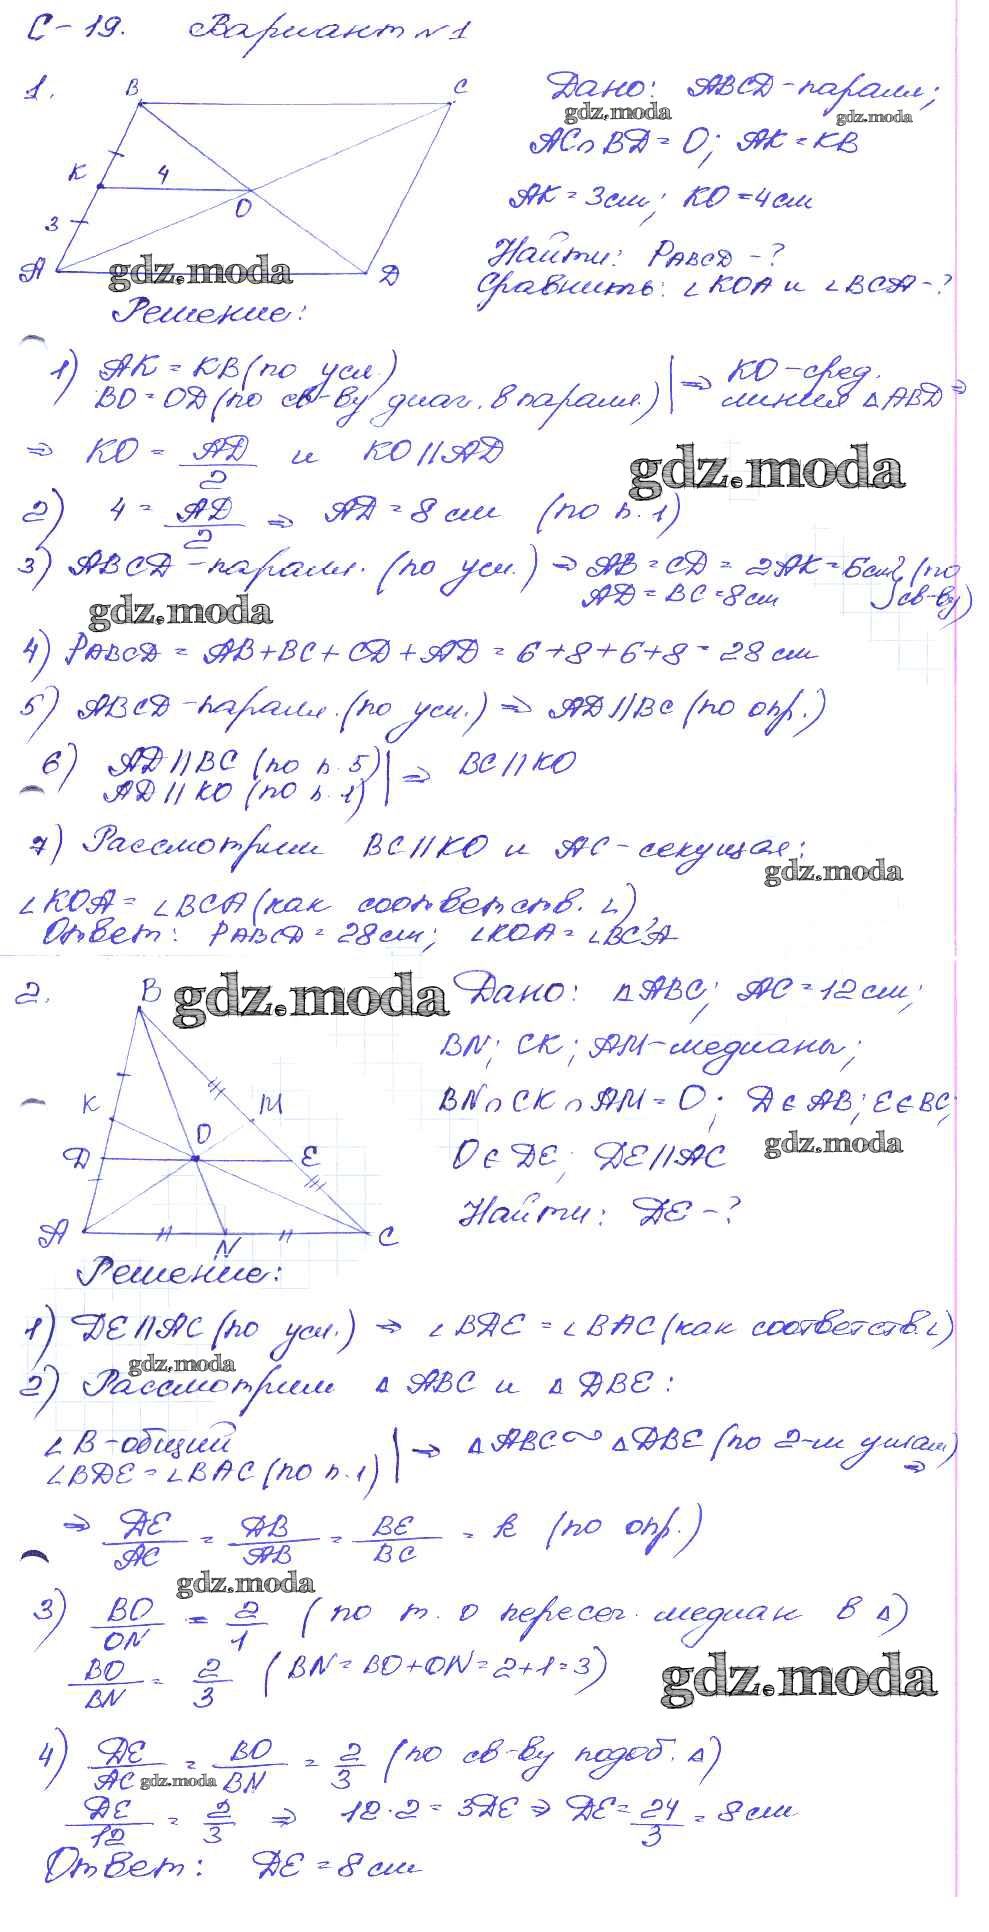 С-19. Вариант №1
1.
B
C
K
4
O
3
A
D
Дано: ABCD-паралл;
gdz.moda
gdz.moda
AC∩BD=O; AK=KB
AK=3см; KO=4см
Найти: PABCD-?
Сравнить: ∠KOA и ∠BCA-?
gdz.moda
Решение:
1) AK=KB(по усл.)
BO=OD(по св-ву диаг. в паралл.) | ⇒ KO-сред. линия △ABD ⇒
⇒ KO = AD/2 и KO||AD
gdz.moda
2) 4 = AD/2 ⇒ AD=8см (по п.1)
3) ABCD-паралл. (по усл.) ⇒ AB=CD=2AK=6см (по
AD=BC=8см св-ву)
gdz.moda
4) PABCD = AB+BC+CD+AD = 6+8+6+8=28см
5) ABCD-паралл.(по усл.) ⇒ AD||BC (по опр.)
6) AD||BC (по п.5)
AD||KO (по п.1) | ⇒ BC||KO
7) Рассмотрим BC||KO и AC-секущая:
gdz.moda
∠KOA=∠BCA(как соответств.∠)
Ответ: PABCD=28см; ∠KOA=∠BCA
2.
B
gdz.moda
K
M
O
D
E
A
N
C
Дано: △ABC; AC=12см;
BN; CK; AM-медианы;
BN∩CK∩AM=O; D∈AB; E∈BC;
gdz.moda
O∈DE; DE||AC
Найти: DE-?
Решение:
1) DE||AC(по усл.) ⇒ ∠BDE=∠BAC(как соответств.∠)
gdz.moda
2) Рассмотрим △ABC и △DBE:
∠B-общий
∠BDE=∠BAC(по п.1) | ⇒ △ABC∽△DBE(по 2-м углам) ⇒
⇒ DE/AC = DB/AB = BE/BC = k (по опр.)
gdz.moda
3) BO/ON = 2/1 (по т. о пересеч. медиан в △)
BO/BN = 2/3 (BN=BO+ON=2+1=3)
gdz.moda
4) DE/AC = BO/BN = 2/3 (по св-ву подоб.△)
gdz.moda
DE/12 = 2/3 ⇒ 12·2=3DE ⇒ DE=24/3=8см
Ответ: DE=8см